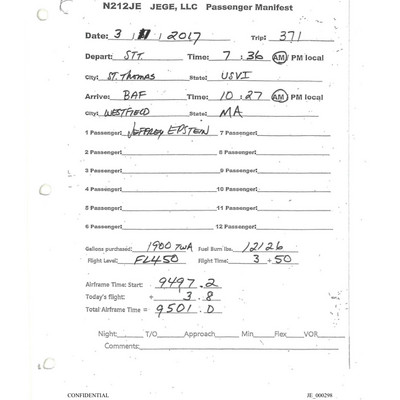 N212JE JEGE, LLC Passenger Manifest
Date: 3 / 1 / 2017 Trip: 371
Depart: STT Time: 7 : 36 AM / PM local
City: ST. THOMAS State: USVI
Arrive: BAF Time: 10 : 27 AM / PM local
City: WESTFIELD State: MA
1 Passenger: JEFFREY EPSTEIN 7 Passenger:
2 Passenger: 8 Passenger:
3 Passenger: 9 Passenger:
4 Passenger: 10 Passenger:
5 Passenger: 11 Passenger:
6 Passenger: 12 Passenger:
Gallons purchased: 1900 TWA Fuel Burn lbs. 12126
Flight Level: FL450 Flight Time: 3 + 50
Airframe Time: Start: 9497.2
Today's flight: + 3.8
Total Airframe Time = 9501.0
Night: T/O Approach Min Flex VOR
Comments:
CONFIDENTIAL JE_000298